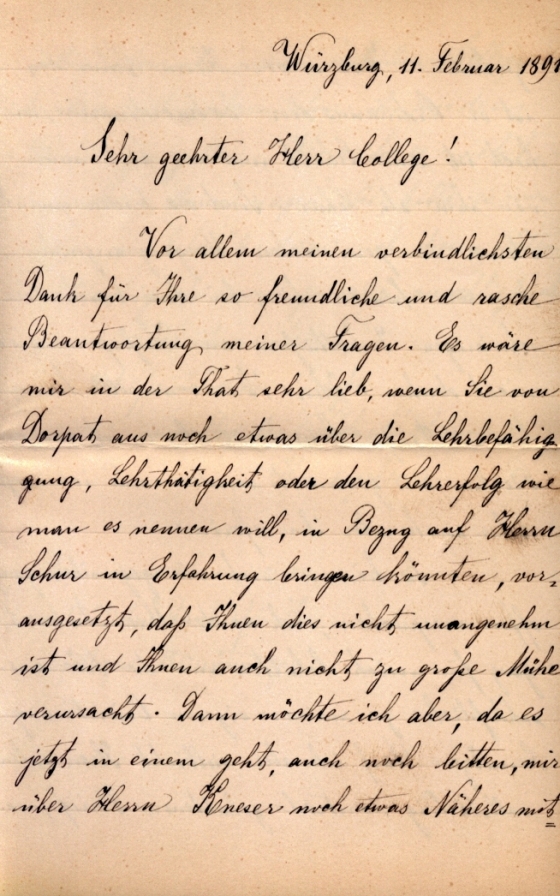 Würzburg, 11. Februar 189
Sehr geehrter Herr College!
Vor allem meinen verbindlichsten
Dank für Ihre so freundliche und rasche
Beantwortung meiner Fragen. Es wäre
mir in der That sehr lieb, wenn Sie von
Dorpat aus noch etwas über die Lehrbefähig-
gung, Lehrthätigkeit oder den Lehrerfolg wie
man es nennen will, in Bezug auf Herrn
Schur in Erfahrung bringen könnten, vor-
ausgesetzt, daß Ihnen dies nicht unangenehm
ist und Ihnen auch nicht zu große Mühe
verursacht. Dann möchte ich aber, da es
jetzt in einem geht, auch noch bitten, mir
über Herrn Kneser noch etwas Näheres mit=